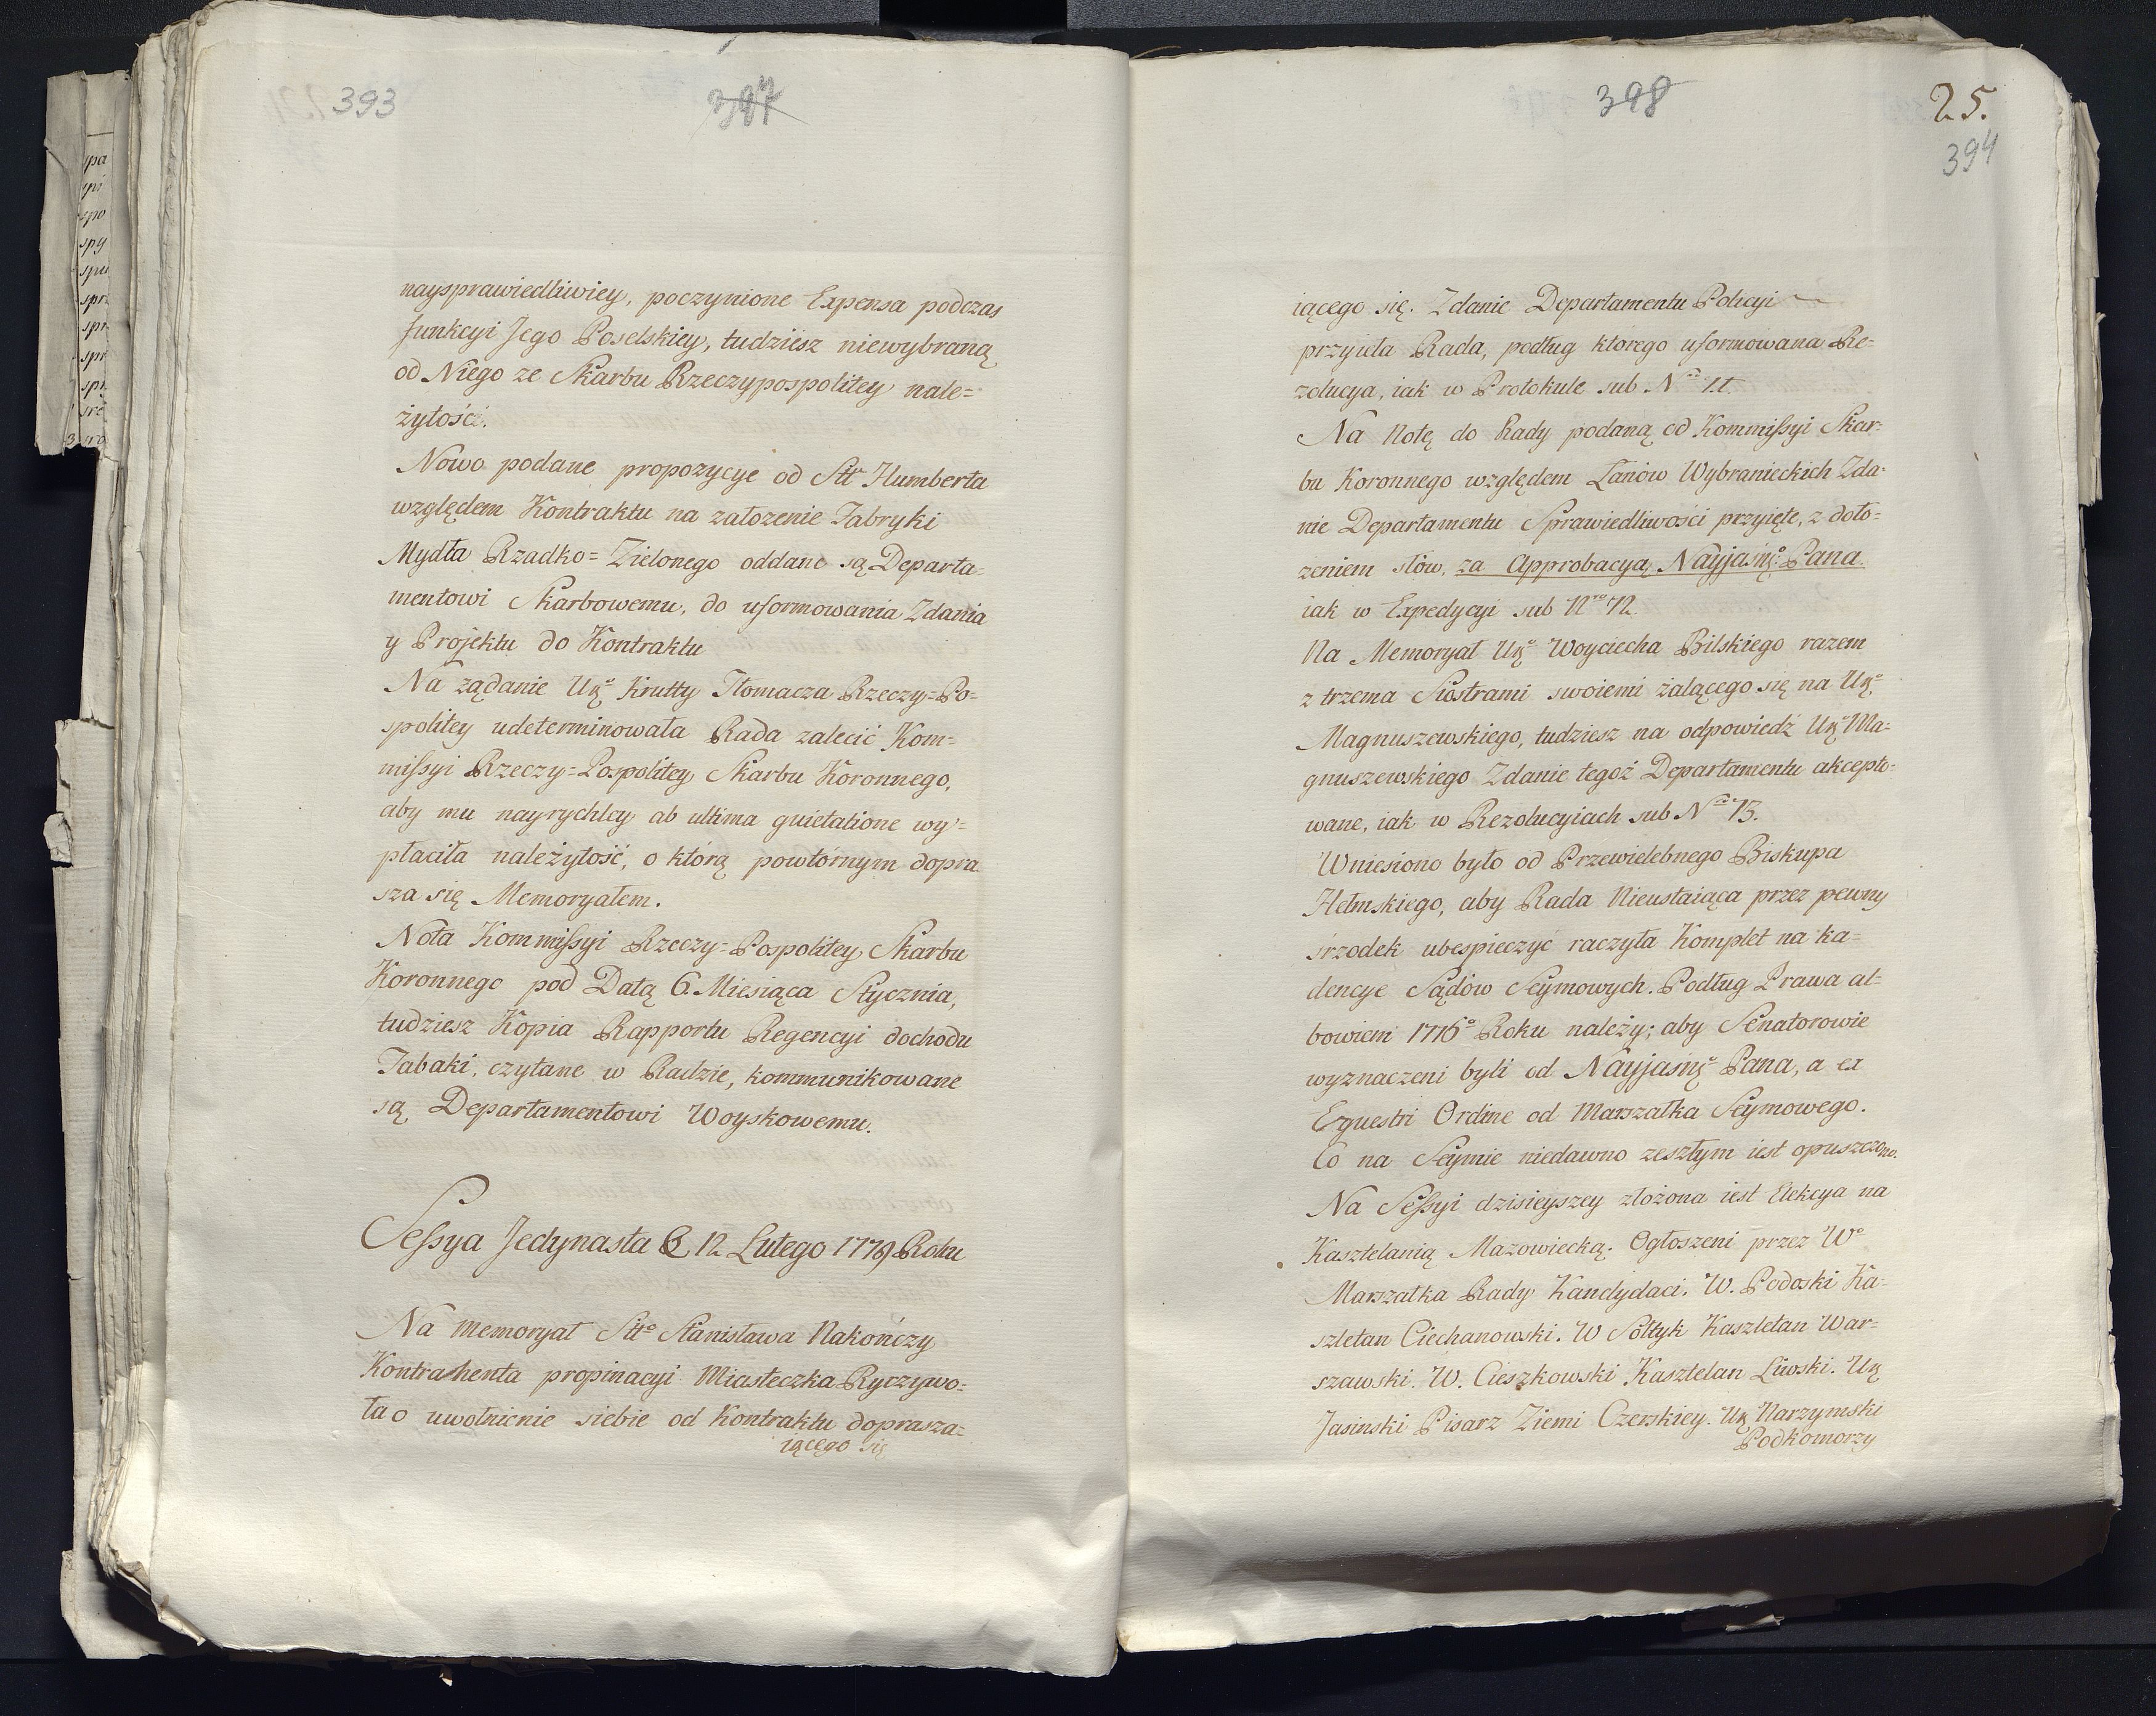 393
397
naysprawiedliwiey, poczynione Expensa podczas
funkcyi Jego Poselskiey, tudziesz niewybraną
od Niego ze Skarbu Rzeczypospolitey nale=
żytość.
Nowo podane propozycye od Sttr Humberta
względem Kontraktu na załozenie Fabryki
Mydła Rzadko=Zielonego oddane są Departa=
mentowi Skarbowemu, do uformowania Zdania
y Projektu do Kontraktu
Na ządanie Uŗo Krutty Tłomacza Rzeczy=Po=
spolitey udeterminowała Rada zalecić Kom=
mißyi Rzeczy=Pospolitey Skarbu Koronnego,
aby mu nayrychley ab ultima quietatione wy=
płaciła należytość, o którą powtórnym dopra
sza się Memoryałem.
Nota Kommißyi Rzeczy=Pospolitey Skarbu
Koronnego pod Datą 6. Miesiąca Stycznia,
tudziesz Kopia Rapportu Regencyi dochodu
Tabaki, czytane w Radzie, kommunikowane
są Departamentowi Woyskowemu.
Seßya Jedynasta D 12 Lutego 1779 Roku
Na memoryał Stto Stanisława Nakończy
Kontrahenta propinacyi Miasteczka Ryczywo=
ła o uwolnienie siebie od Kontraktu doprasza=
iącego się
398
25.
394
iącego się. Zdanie Departamentu Policyi
przyięła Rada, podług ktorego uformowana Re=
zolucya, iak w Protokule sub Nro 11.
Na Notę do Rady podaną od Kommißyi Skar=
bu Koronnego względem Łanów Wybranieckich Zda=
nie Departamentu Sprawiedliwości przyięte, z doło=
zeniem słów, za Approbacyą Nayjaśņo Pana.
iak w Expedycyi sub Nro 12.
Na Memoryał Uŗo Woyciecha Bilskiego razem
z trzema Siostrami swoiemi żalącego się na Uŗo
Magnuszewskiego, tudziesz na odpowiedź Uŗo Ma=
gnuszewskiego Zdanie tegoż Departamentu akcepto=
wane, iak w Rezolucyiach sub Nro 13.
Wniesiono było od Przewielebnego Biskupa
Hełmskiego, aby Rada Nieustaiąca przez pewny
śrzodek ubespieczyć raczyła Komplet na ka=
dencye Sądów Seymowych. Podług Prawa al=
bowiem 1776o Roku należy; aby Senatorowie
wyznaczeni byli od Nayjaśņo Pana, a ex
Equestri Ordine od Marszałka Seymowego.
Co na Seymie niedawno zeszłym iest opuszczono.
Na Seßyi dzisieyszey złożona iest Elekcya na
Kasztelanią Mazowiecką. Ogłoszeni przez Wo
Marszałka Rady Kandydaci. W. Podoski Ka=
sztelan Ciechanowski. W Sołtyk Kasztelan War=
szawski. W. Cieszkowski Kasztelan Liwski. Uŗ
Jasinski Pisarz Ziemi Czerskiey. Uŗ Narzymski
Podkomorzy